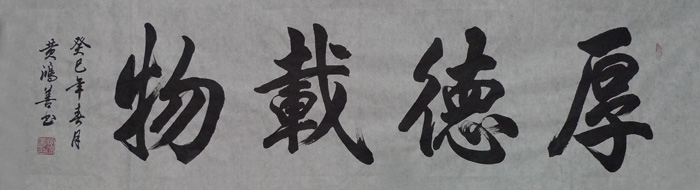 厚德載物
癸巳年春月
黄鴻善书